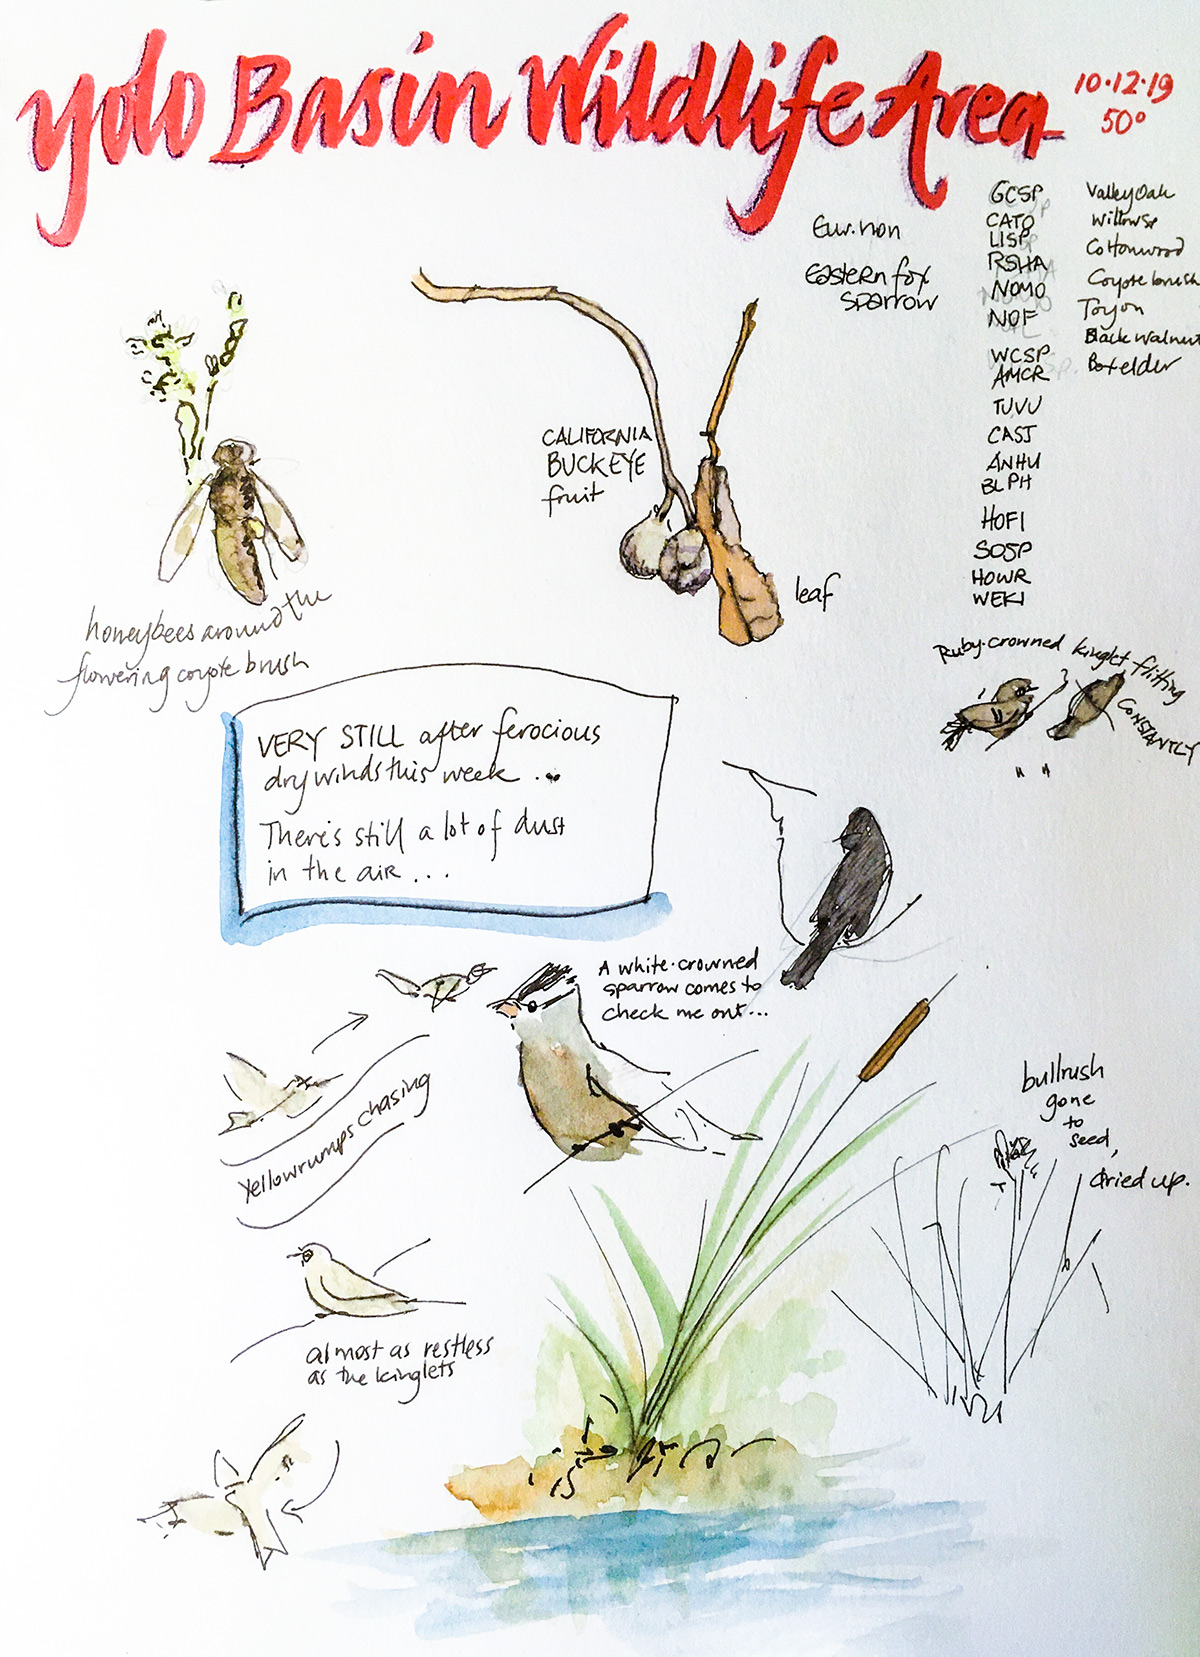 Yolo Basin Wildlife Area
10·12·19
50°
Eur. non
Eastern fox
sparrow
GCSP
CATO
LISP
RSHA
NOMO
NOF
WCSP
AMCR
TUVU
CASJ
ANHU
BLPH
HOFI
SOSP
HOWR
WEKI
Valley Oak
Willow sp
Cottonwood
Coyote brush
Toyon
Black walnut
Box elder
CALIFORNIA
BUCKEYE
fruit
leaf
honeybees around the
flowering coyote brush
Ruby-crowned kinglet flitting
CONSTANTLY
VERY STILL after ferocious
dry winds this week ...
There's still a lot of dust
in the air ...
A white-crowned
sparrow comes to
check me out...
Yellowrumps chasing
bullrush
gone
to
seed,
dried up.
almost as restless
as the kinglets